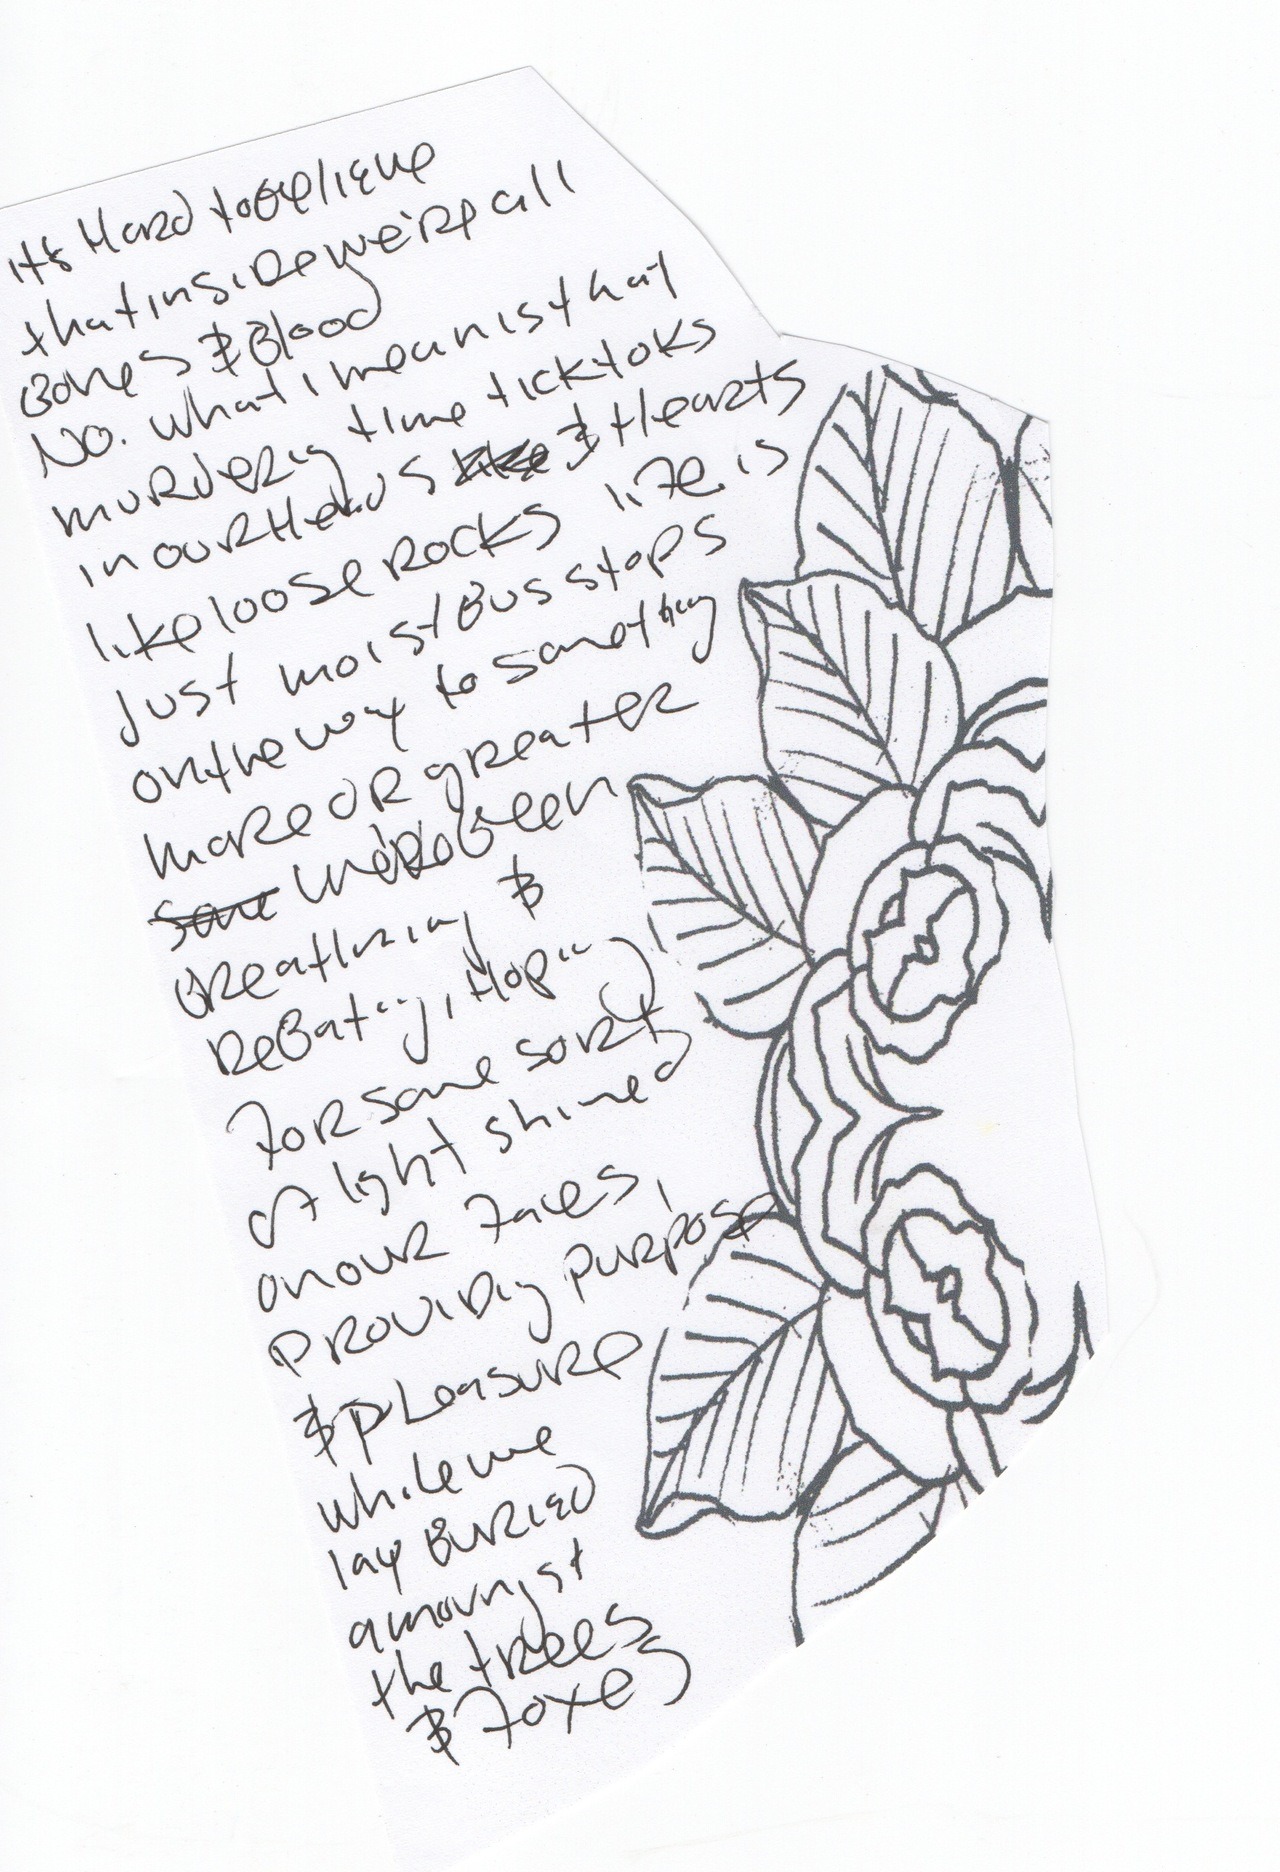 it's Hard to Believe
that inside we're all
Bones & Blood
No. what i mean is that
murdering time ticktoks
in our Heads & Hearts
like loose rocks life is
Just moist Bus stops
on the way to something
more or greater
we've been
Breathing &
Hoping
For some sort
of light shined
on our Faces,
providing purpose
& pleasure
while we
lay Buried
amoungst
the trees
& Foxes